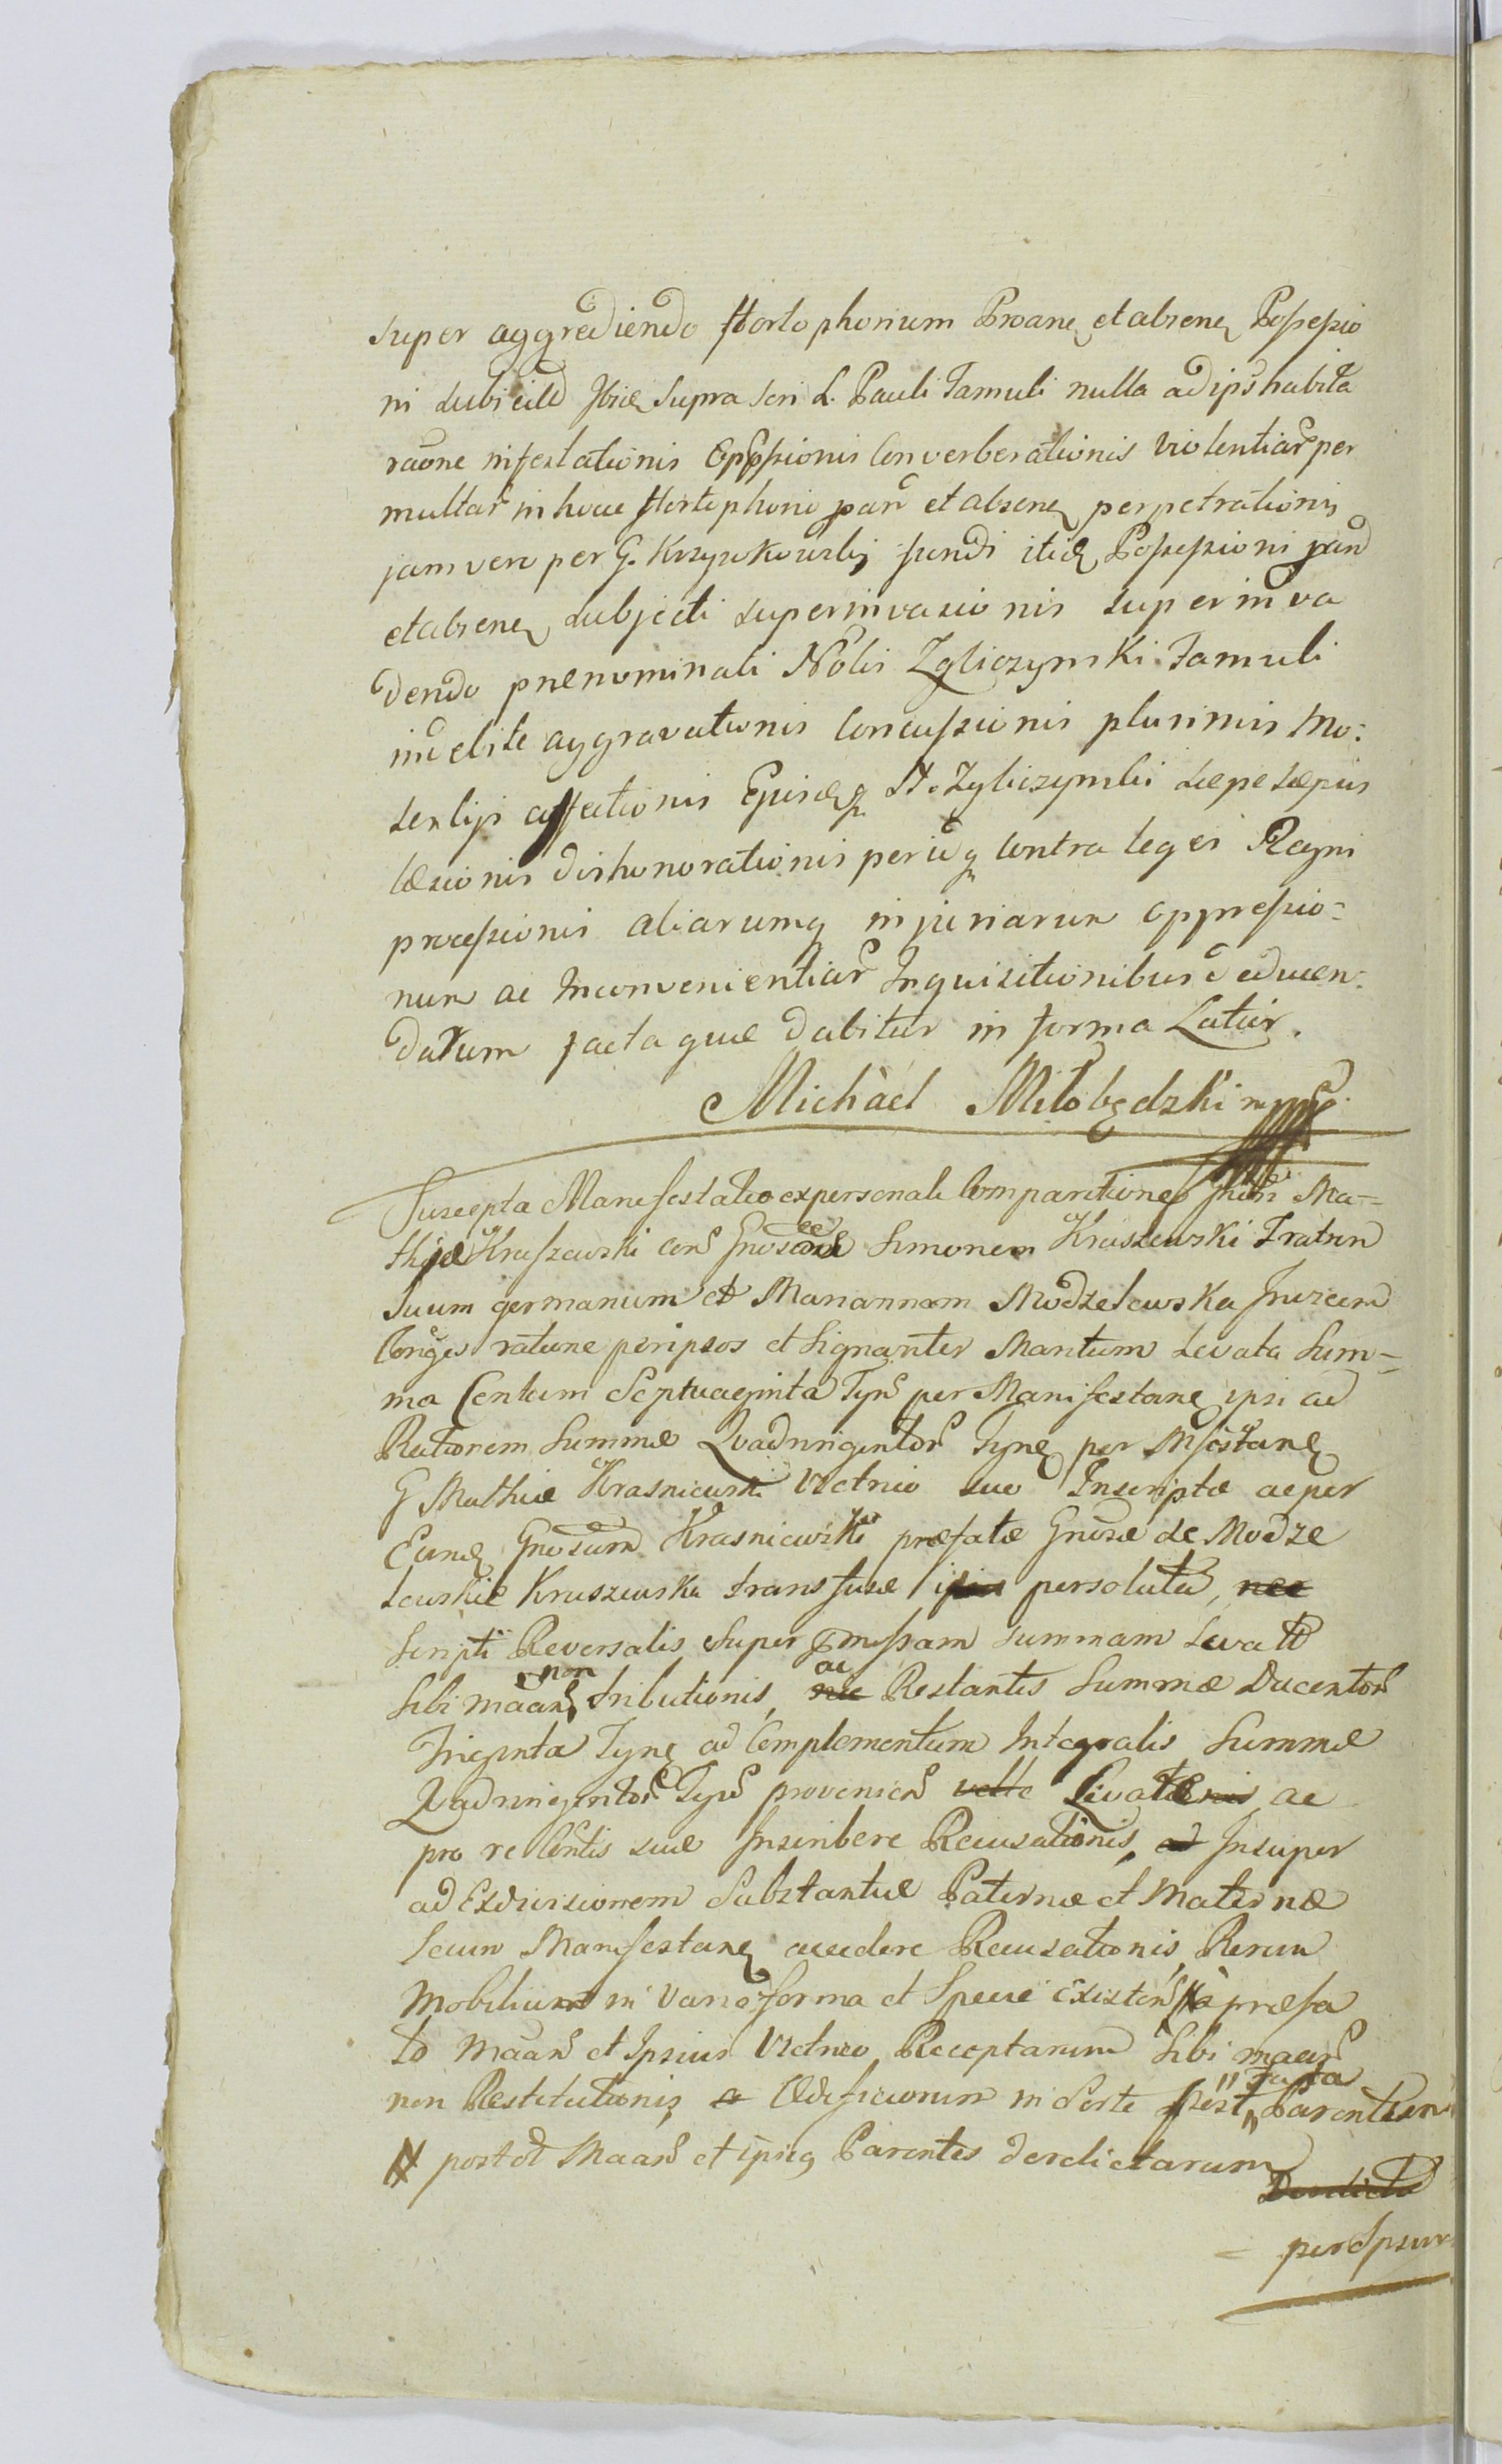 super aggrediendo Hortophorium Proane et absene Possessio
ni subjcild Ibide supra scri L. Pauli Famuli nulla ad ips habita
raone infestationis Opp̄ssionis Converberationis Violentiar per
multar in hocce Hortophorio pan et absene perpetrationis
jam vero per G. Krzywkowski fundi itide Possessioni pand
et absene subjecti superinvasionis superinva
dendo prænominati Nobis Zgliczynski Famuli
indebite aggravationis Concussionis plurimis mo:
lestijs affectionis Ejusdeq N. Zgliczynski sæpe sæpius
læsionis dishonorationis pericq contra leges Regni
processionis aliarumq injuriarum oppressio=
num ac Inconvenientiar Inquisitionibus educen:
darum facta quæ dabitur in forma Latior.
Michàel Miłobędzki mpp
Suscepta Manifestatio ex personali Comparitione Gnosi Ma=
thjæ Kraszewski con Gnosos Simonem Kraszewski Fratrem
Suum germanum et Mariannam Modzelewska Invicem
Conges ratione per ipsos et signanter Maritum Levata Sum=
ma Centum Septuaginta Tyn per Manifestane ipsi ad
Rationem Summæ Quadringentor Tyne per Mfestane
G Mathiæ Krasnicwski Vitrico suo Inscriptæ ac per
Eund Gnosum Krasniewski præfatæ Gnosæ de Modze
lewskie Kraszewska transfusæ persoluta, nec
Scripti Reversalis super præmissam summam Levatt
non
Sibi maan, tributionis, ac Restantis Summæ Ducentor
Triginta Tyne ad Complementum Integralis Summæ
Quadringentor Tyn provenien velle Levatæ ac
pro re Contis suæ Inscribere Recusationis, ad Insuper
ad Exdivisionem Substantiæ Paternæ et Maternæ
secum Manifestane accedere Recusationis Rerum
Mobilium in varia forma et Specie existen præfa
to Maan et Ipsius Vitrico Receptarum sibi maan
non Restitutionis Ædificiorum in Sorte post fata Parentum
post Maan et ipsiq Parentes derelictarum
Derelicta
= per Ipsum